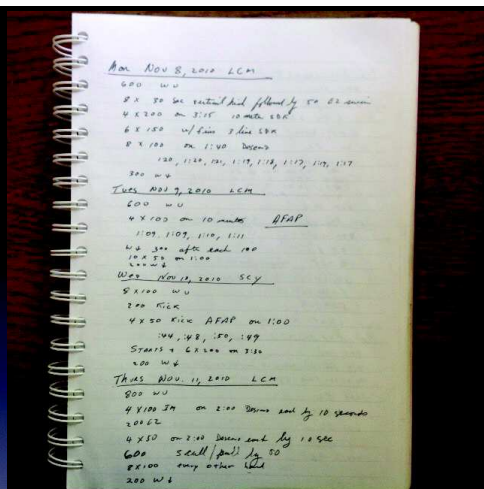 Mon Nov 8, 2010 LCM
600 WU
8 x 30 sec vertical kick followed by 50 EZ swim
4 x 200 on 3:15 10 meter SDK
6 x 150 w/ fins 3 line SDK
8 x 100 on 1:40 Descend
1:20, 1:20, 1:21, 1:19, 1:18, 1:17, 1:19, 1:17
300 W↓
Tues Nov 9, 2010 LCM
600 WU
4 x 100 on 10 minutes AFAP
1:09 1:09, 1:10, 1:11
W↓ 300 after each 100
10 x 50 on 1:00
200 W↓
Wed Nov 10, 2010 SCY
8 x 100 WU
200 Kick
4 x 50 Kick AFAP on 1:00
:44, :48, :50, :49
Starts + 6 x 200 on 3:30
200 W↓
Thurs Nov. 11, 2010 LCM
800 WU
4 x 100 IM on 2:00 Descend each by 10 seconds
200 EZ
4 x 50 on 2:00 Descend each by 10 sec
600 scull/pull by 50
8 x 100 every other
200 W↓